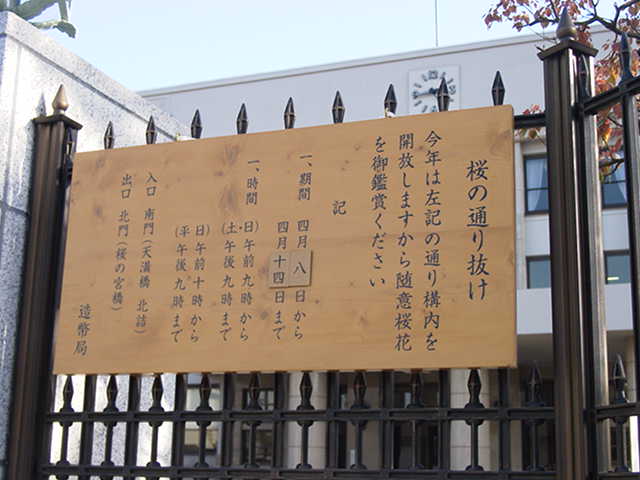 桜の通り抜け
今年は左記の通り構内を
開放しますから随意桜花
を御鑑賞ください
記
一、期間 四月八日から
四月十四日まで
一、時間 日)午前九時から
(土・午後九時まで
日)午前十時から
(平午後九時まで
入口 南門(天満橋 北詰)
出口 北門(桜の宮橋)
造幣局